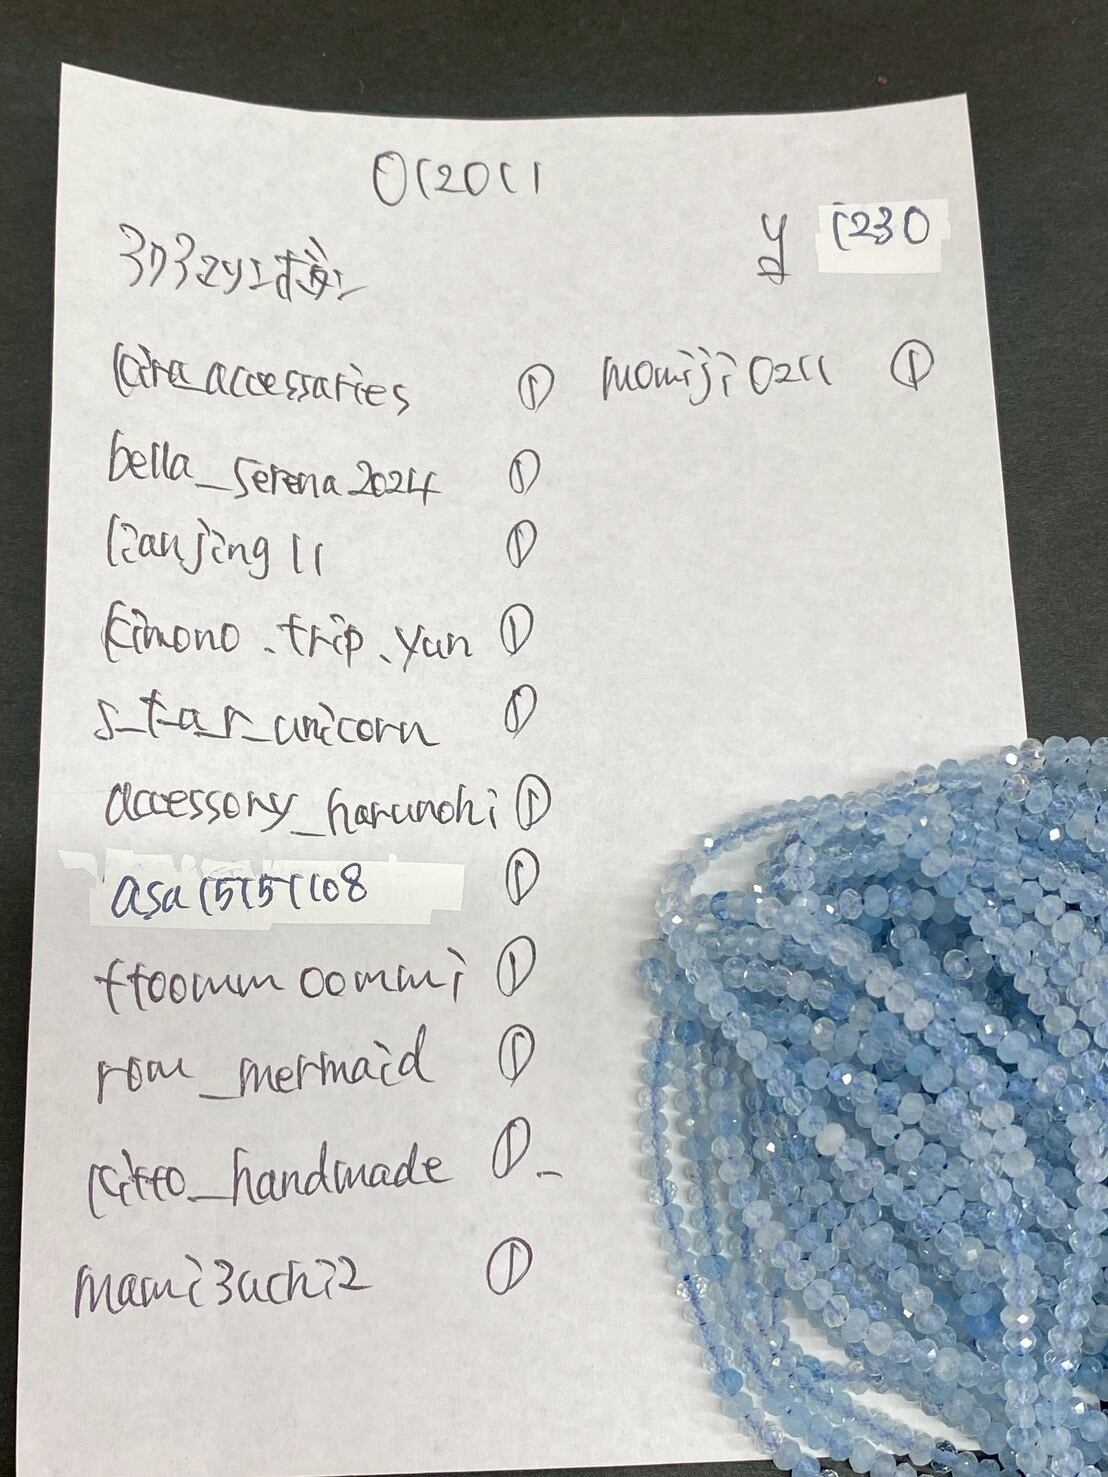 012011
y 1230
accessaries ①
momiji0211 ①
bella_serena2024 ①
lianjing11 ①
kimono.trip.yun ①
s_t_a_r_unicorn ①
accessory_harunohi ①
asa15151108 ①
ttoommoommi ①
_mermaid ①
kitto_handmade ①
mami3uchi2 ①